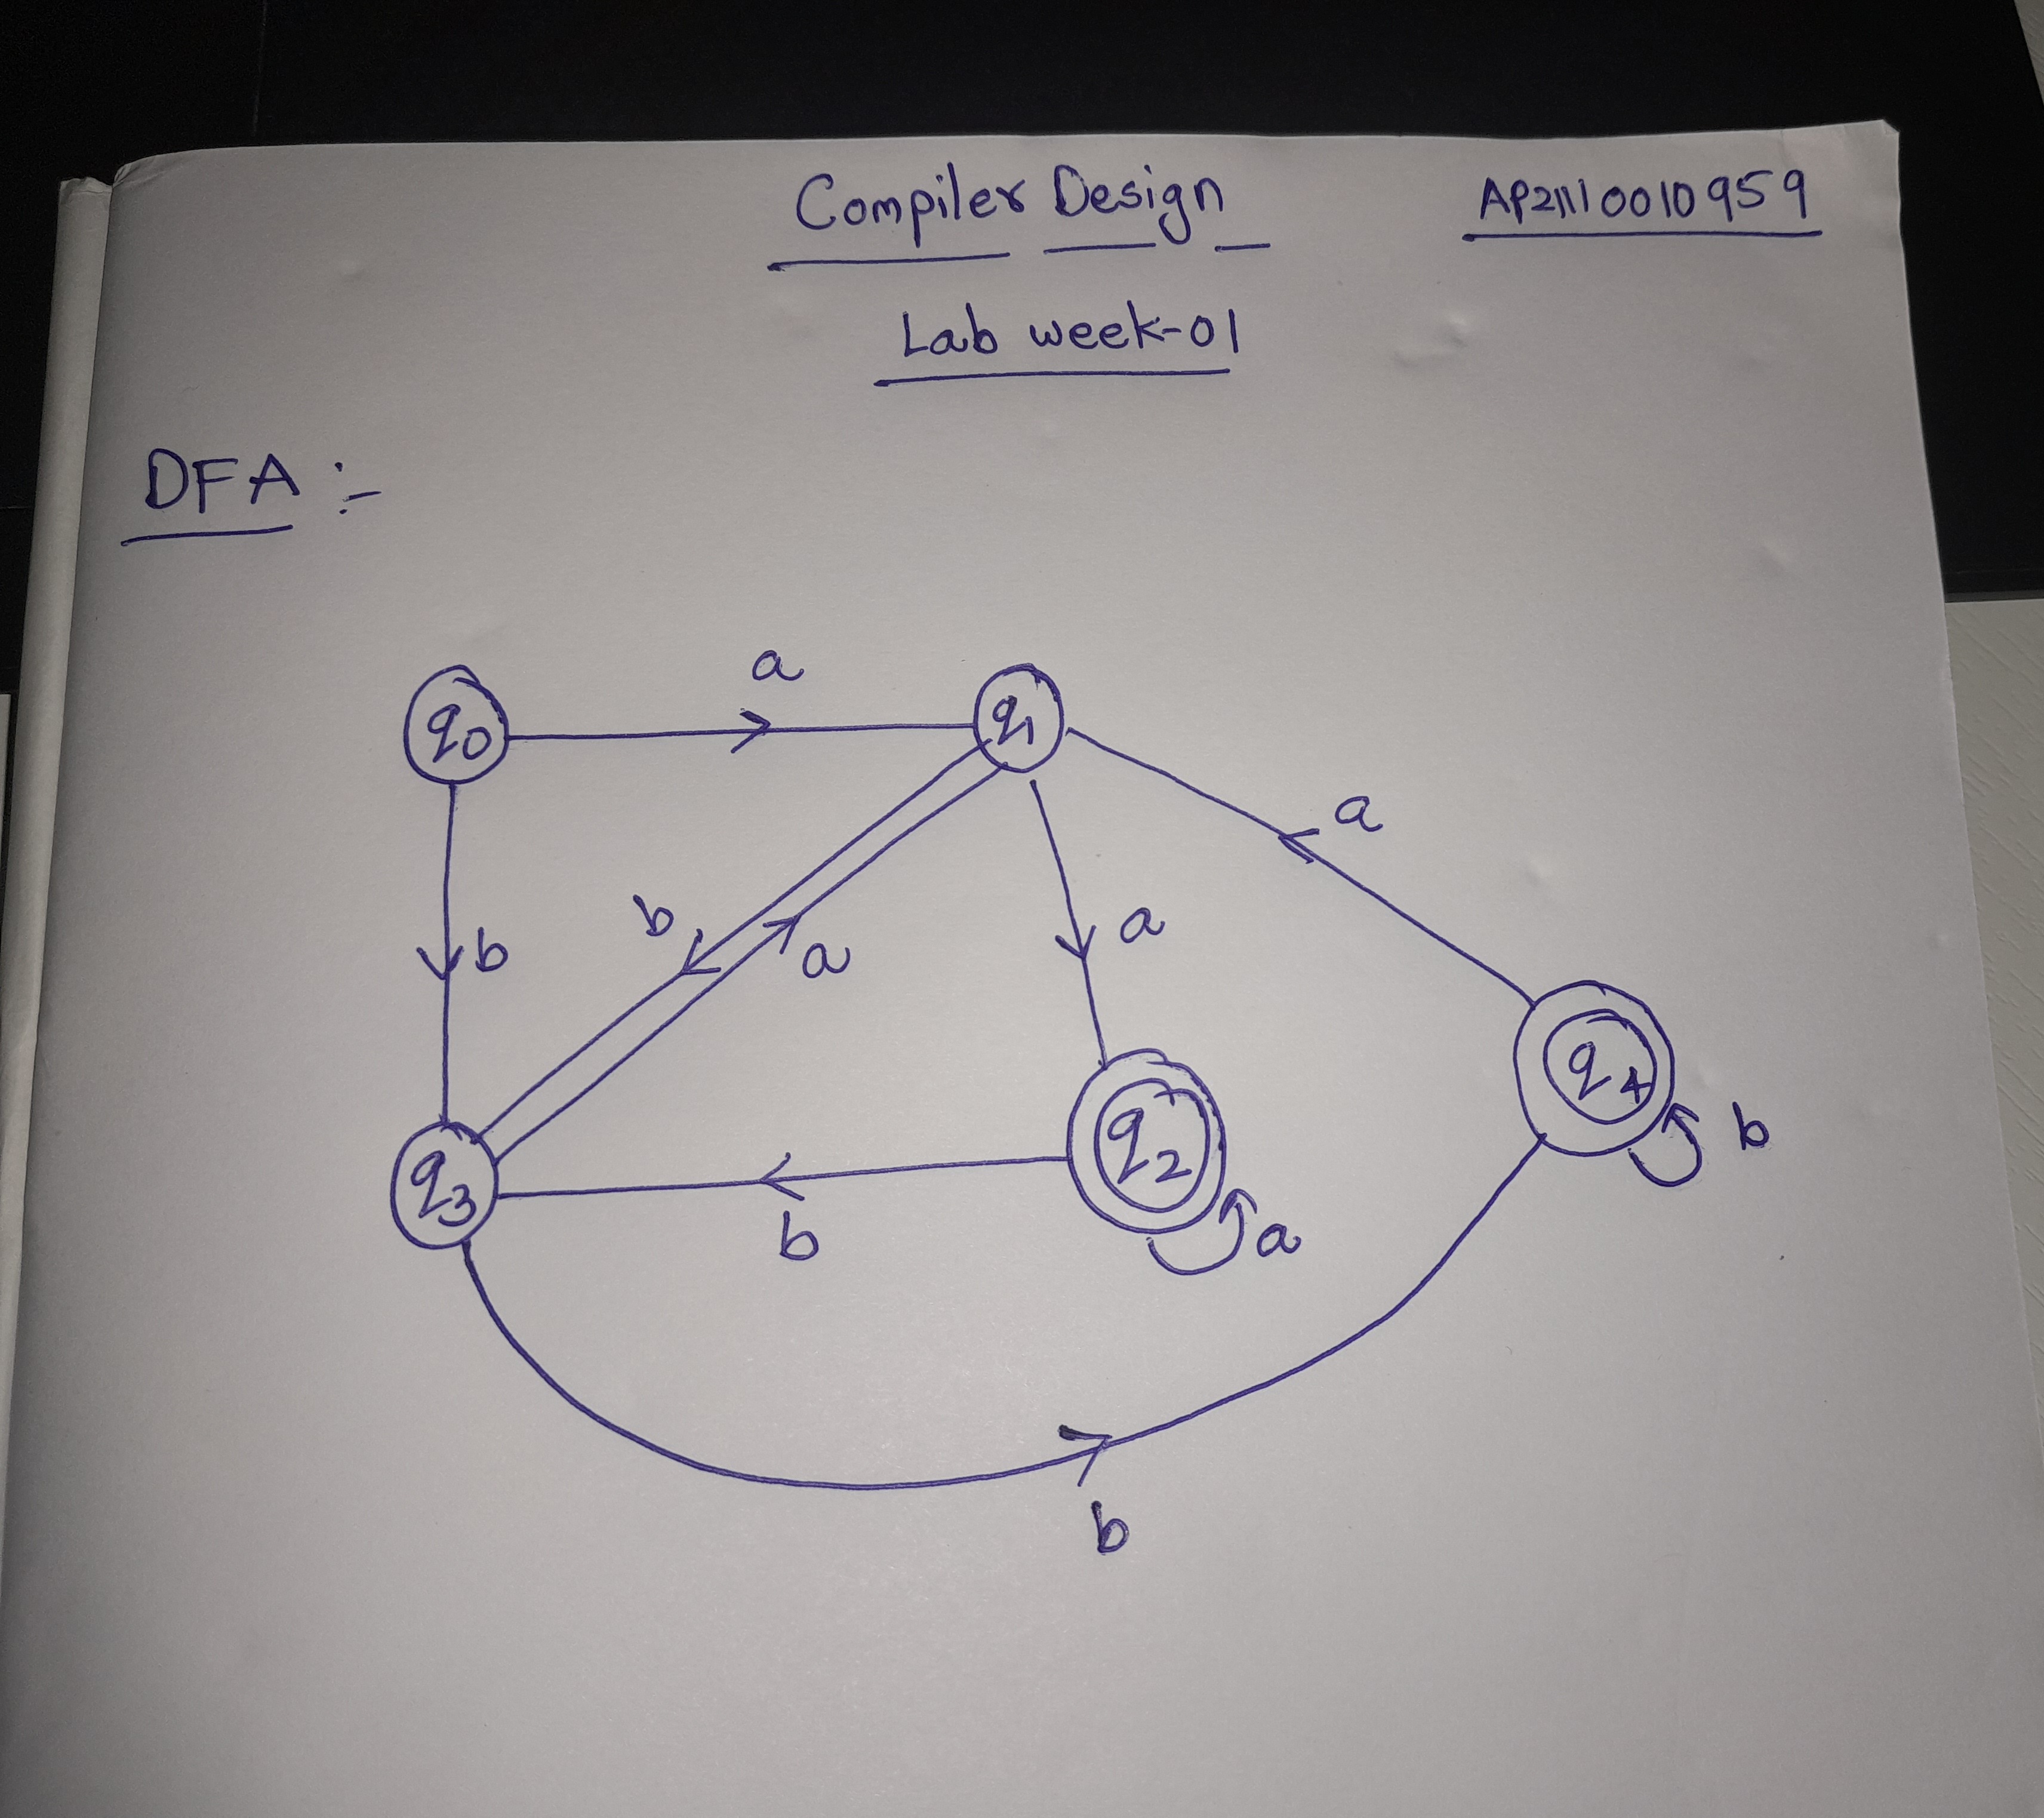 Compiler Design AP21110010959
Lab week-01
DFA :-
a
q0 q1
a
b b a a
q4
b
q2
q3
b a
b